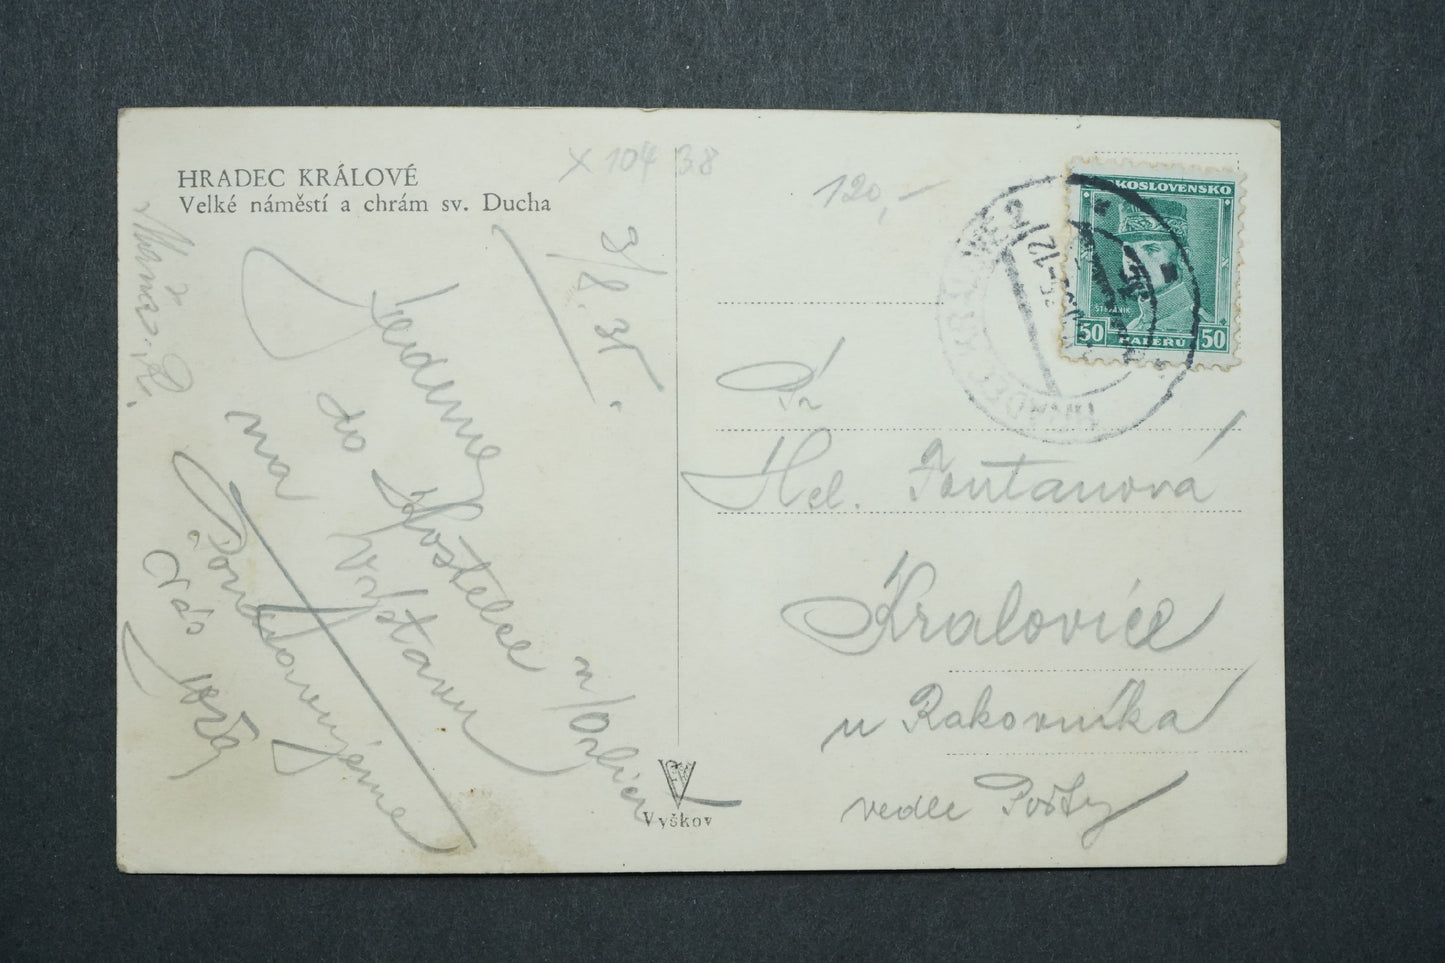 HRADEC KRÁLOVÉ
Velké náměstí a chrám sv. Ducha
X 104 38
120,-
3/8. 35.
Jedeme
do Kostelce n/Orlicí
na výstavu
Pozdravujeme
Vás
ČESKOSLOVENSKO
ŠTEFÁNIK
50 HALÉŘŮ 50
HRADEC KRÁLOVÉ 2
Hel. Fontanová
Kralovice
u Rakovníka
vedle Pošty
Vyškov